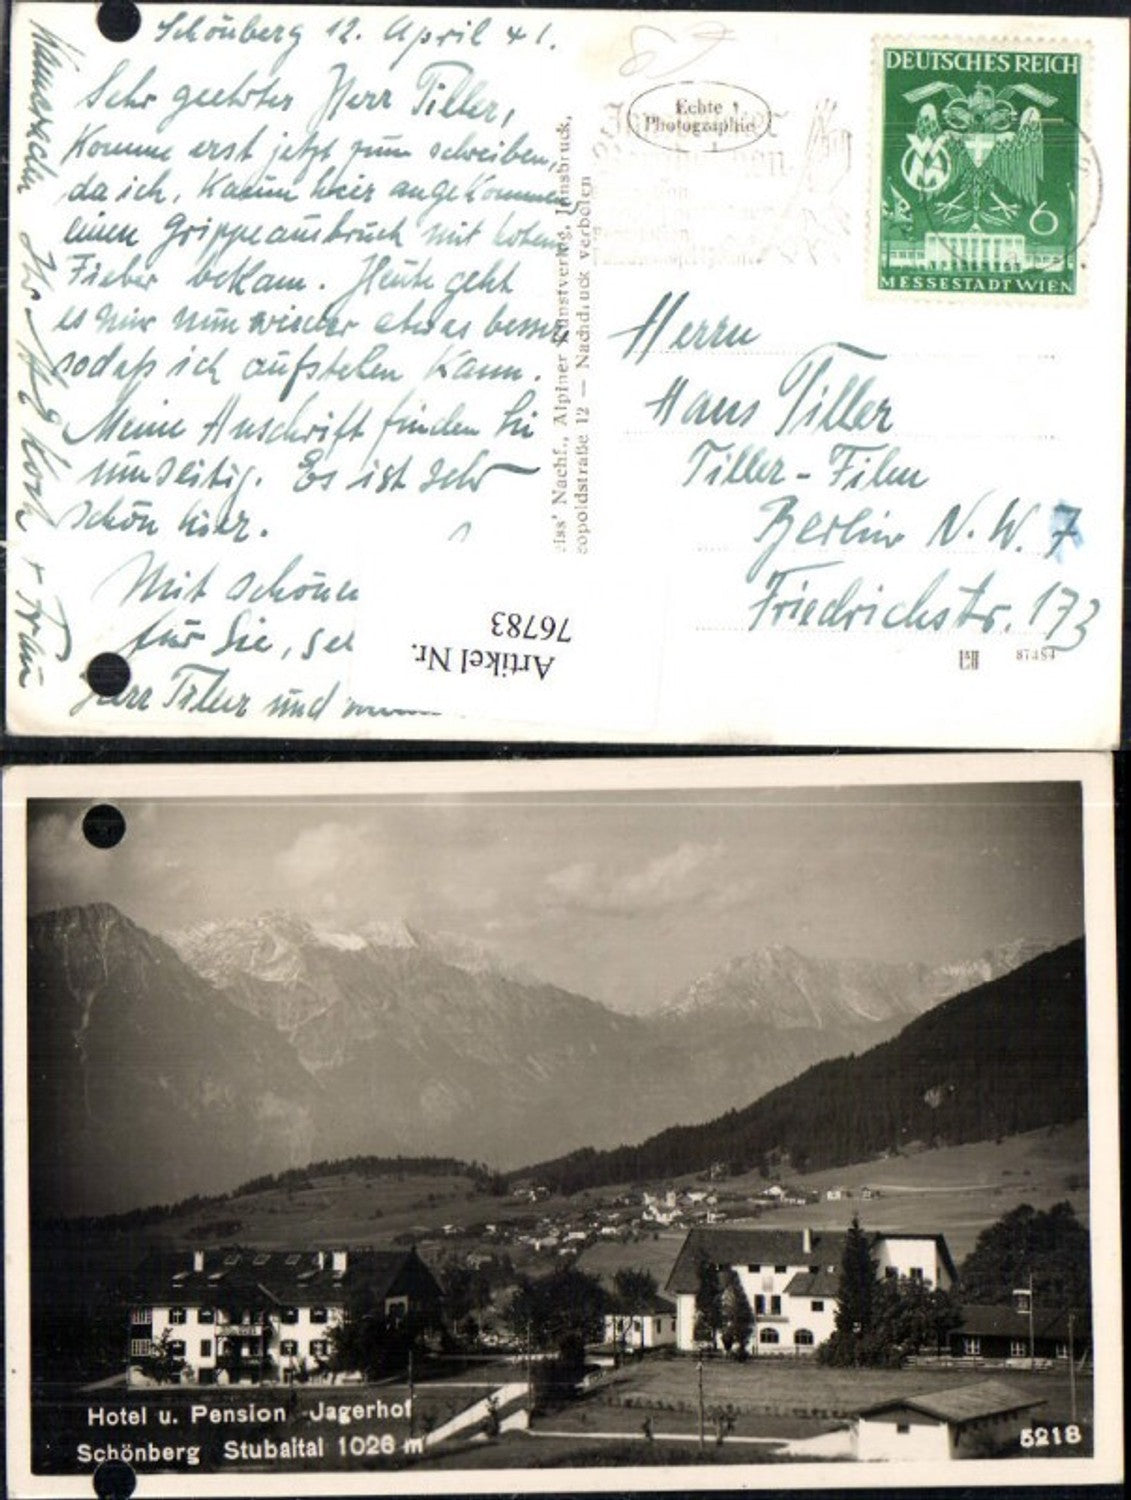 Schönberg 12. April 41.
Sehr geehrter Herr Tiller,
Komme erst jetzt zum schreiben,
da ich, kaum hier angekommen
einen Grippeausbruch mit hohem
Fieber bekam. Heute geht
es mir nun wieder etwas besser
sodaß ich aufstehen kann.
Meine Anschrift finden Sie
umseitig. Es ist sehr
schön hier.
Mit schönen
für Sie,
Herr Tiller und
Koch + Frau
eiss' Nachf., Alpiner Kunstverlag, Innsbruck,
eopoldstraße 12 — Nachdruck verboten
Echte
Photographie
DEUTSCHES REICH
6
MESSESTADT WIEN
Herrn
Hans Tiller
Tiller-Film
Berlin N.W. 7
Friedrichstr. 173
Artikel Nr.
76783
Hotel u. Pension Jagerhof
Schönberg Stubaital 1026 m
5218